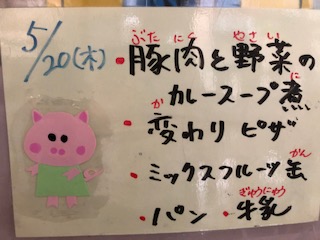 5/20(木)
ぶたにく やさい
・豚肉と野菜の
に
カレースープ煮
か
・変わりピザ
かん
・ミックスフルーツ缶
ぎゅうにゅう
・パン ・牛乳